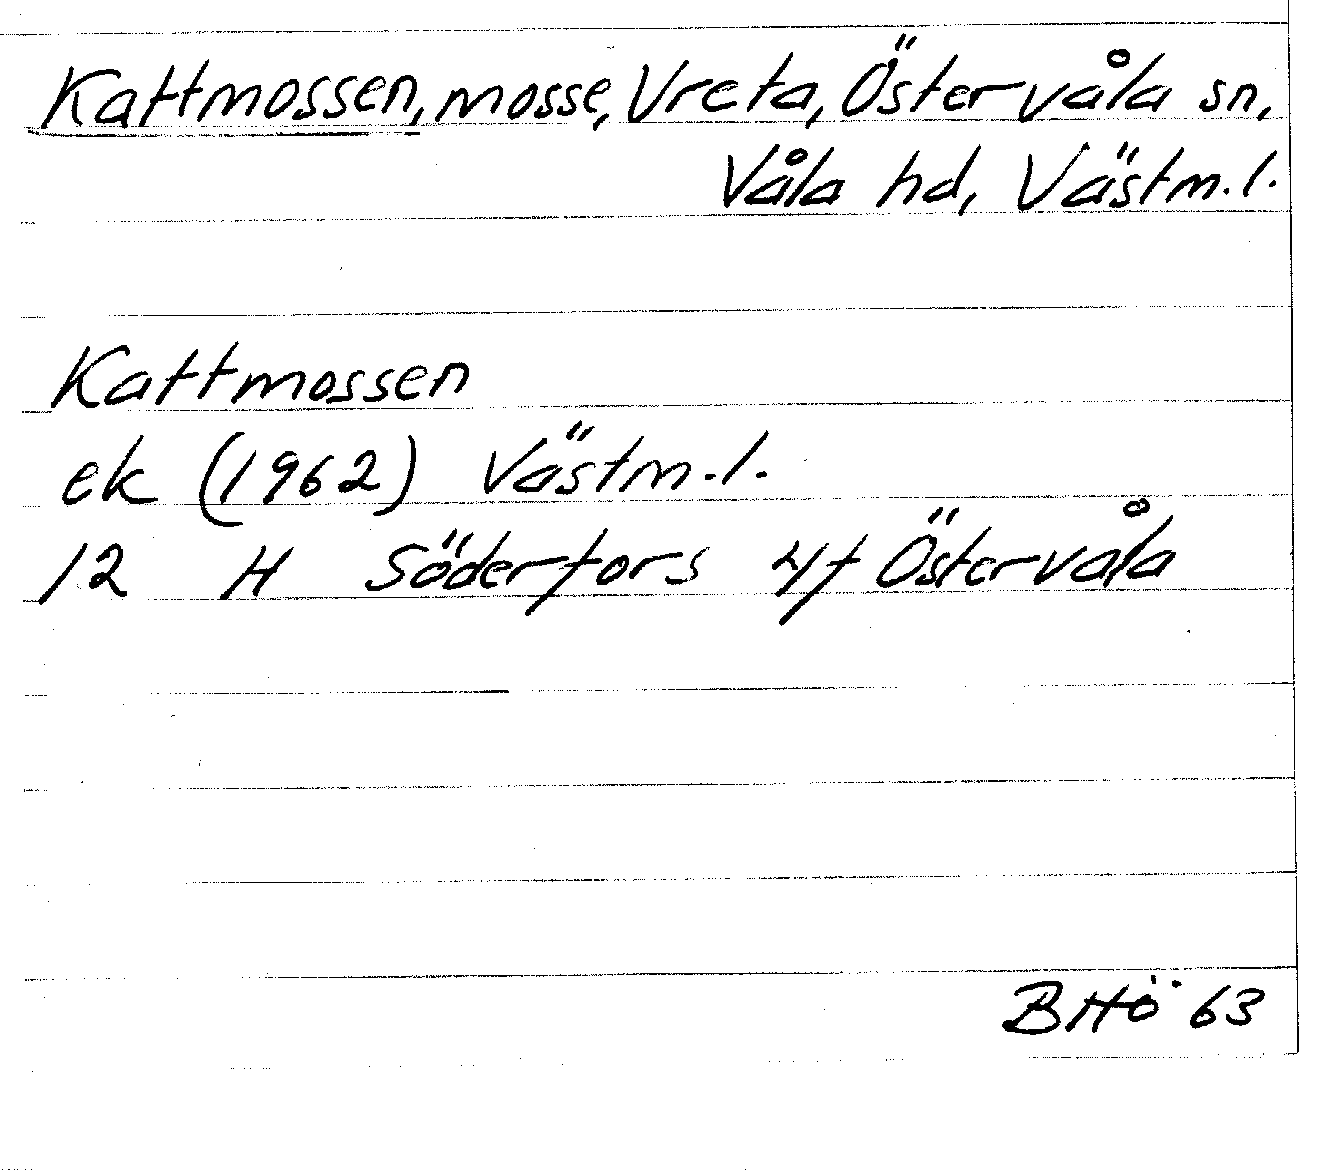 Kattmossen, mosse, Vreta, Östervåla sn,
Våla hd, Västm.l.
Kattmossen
ek (1962) Västm.l.
12 H Söderfors 4f Östervåla
BHö 63